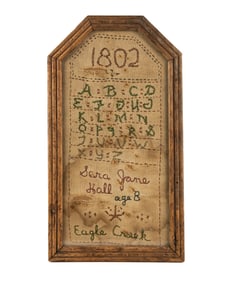 1802
A:B:C:D
E:F:G:H:I:J
K:L:M:N
O:P:Q:R:S
T:U:V:W
X:Y:Z
Sara Jane
Hall
age 8
Eagle Creek